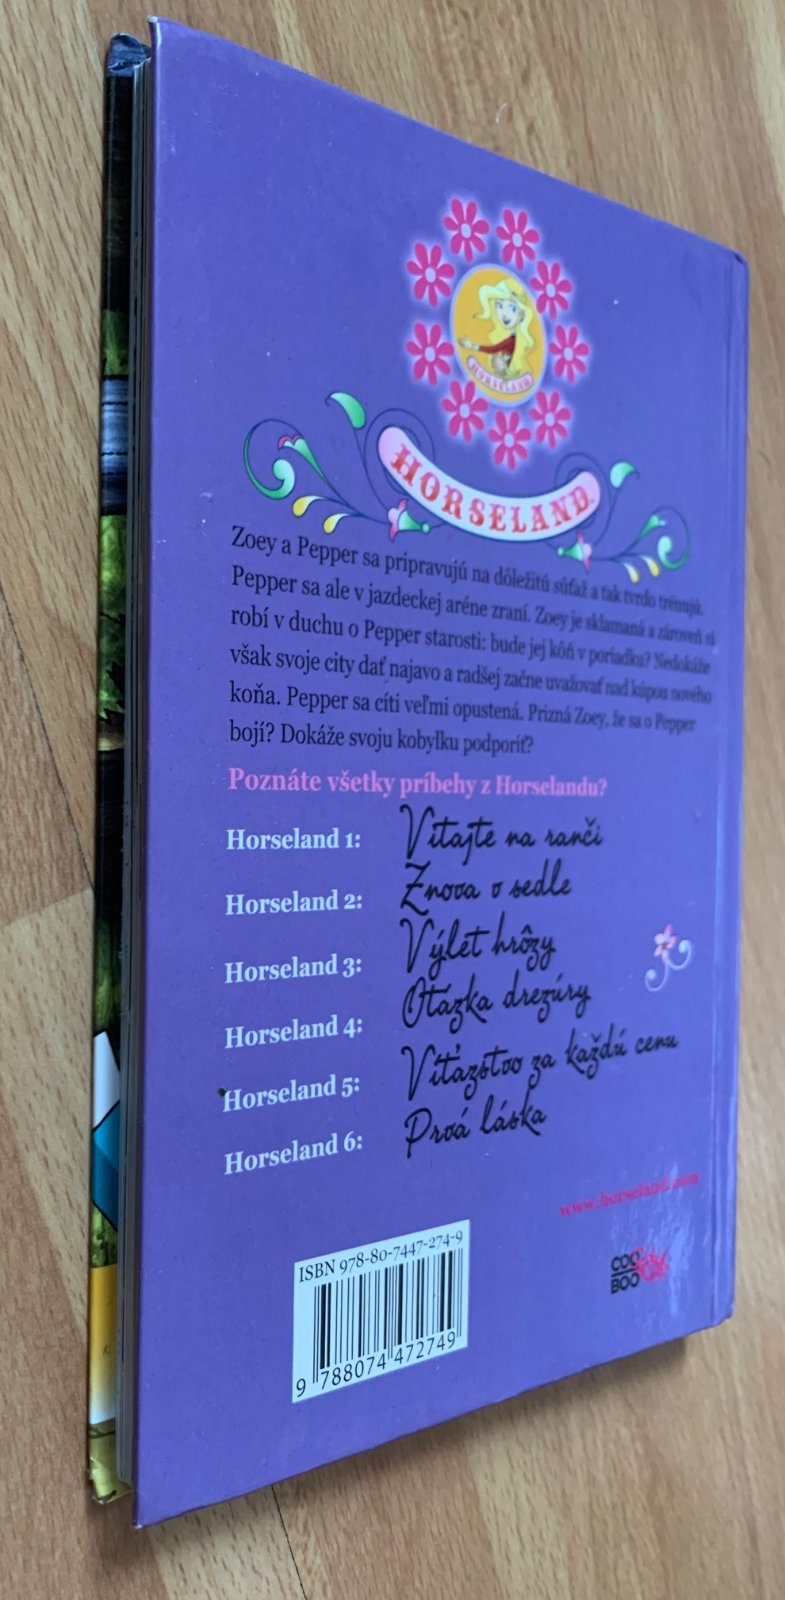 HORSELAND
HORSELAND
Zoey a Pepper sa pripravujú na dôležitú súťaž a tak tvrdo trénujú.
Pepper sa ale v jazdeckej aréne zraní. Zoey je sklamaná a zároveň si
robí v duchu o Pepper starosti: bude jej kôň v poriadku? Nedokáže
však svoje city dať najavo a radšej začne uvažovať nad kúpou nového
koňa. Pepper sa cíti veľmi opustená. Prizná Zoey, že sa o Pepper
bojí? Dokáže svoju kobylku podporiť?
Poznáte všetky príbehy z Horselandu?
Horseland 1: Vitajte na ranči
Horseland 2: Znova v sedle
Horseland 3: Výlet hrôzy
Horseland 4: Otázka drezúry
Horseland 5: Víťazstvo za každú cenu
Horseland 6: Prvá láska
www.horseland.com
COO
BOO
ISBN 978-80-7447-274-9
9 788074 472749